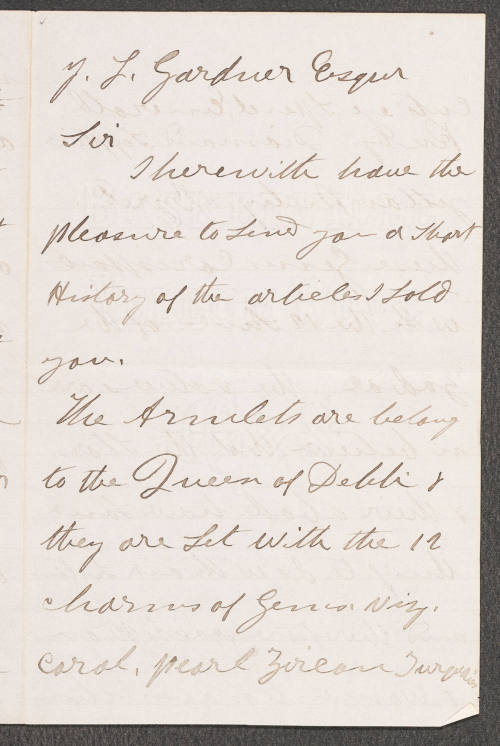 J. L. Gardner Esqur
Sir
I herewith have the
pleasure to send you a Short
History of the articles I Sold
you.
The Armlets are belong
to the Queen of Dehli &
they are Set with the 12
charms of Gems. Viz.
Coral, pearl Zircon Turquois